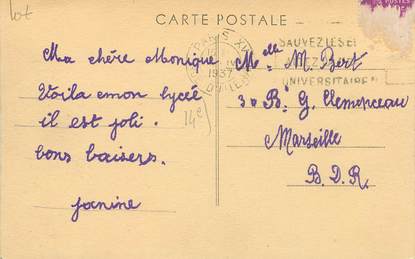 lot
CARTE POSTALE
Ma chère Monique
Voila emon lycée
il est joli.
bons baisers.
Janine
14e
PARIS XIV
1937
SAUVEZ LES
UNIVERSITAIRE
Melle M. Bert
30 Bd G. Clemenceau
Marseille
B.D.R.